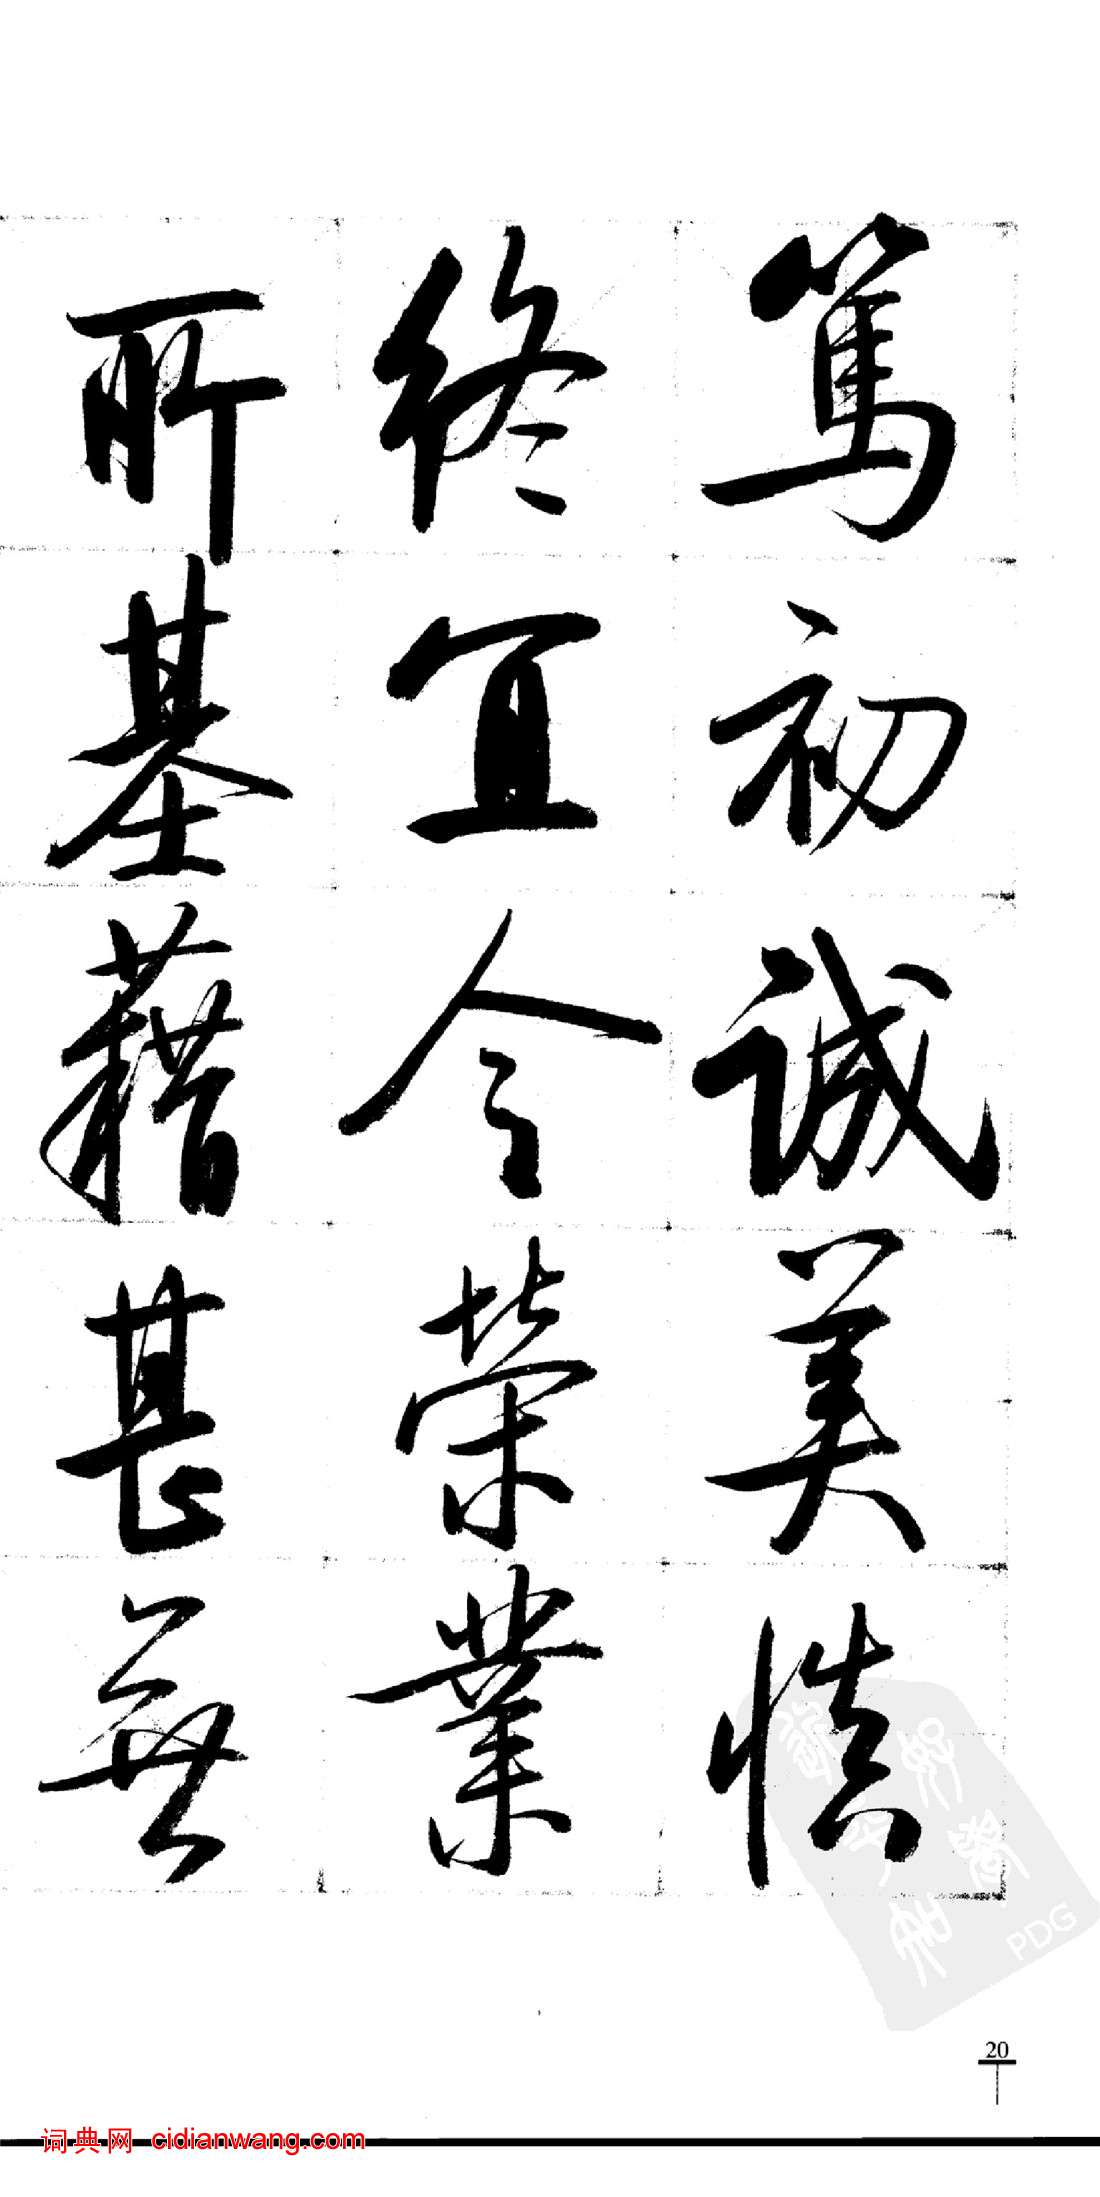 篤初誠美慎
終宜令榮業
所基藉甚無
20
词典网 cidianwang.com
PDG